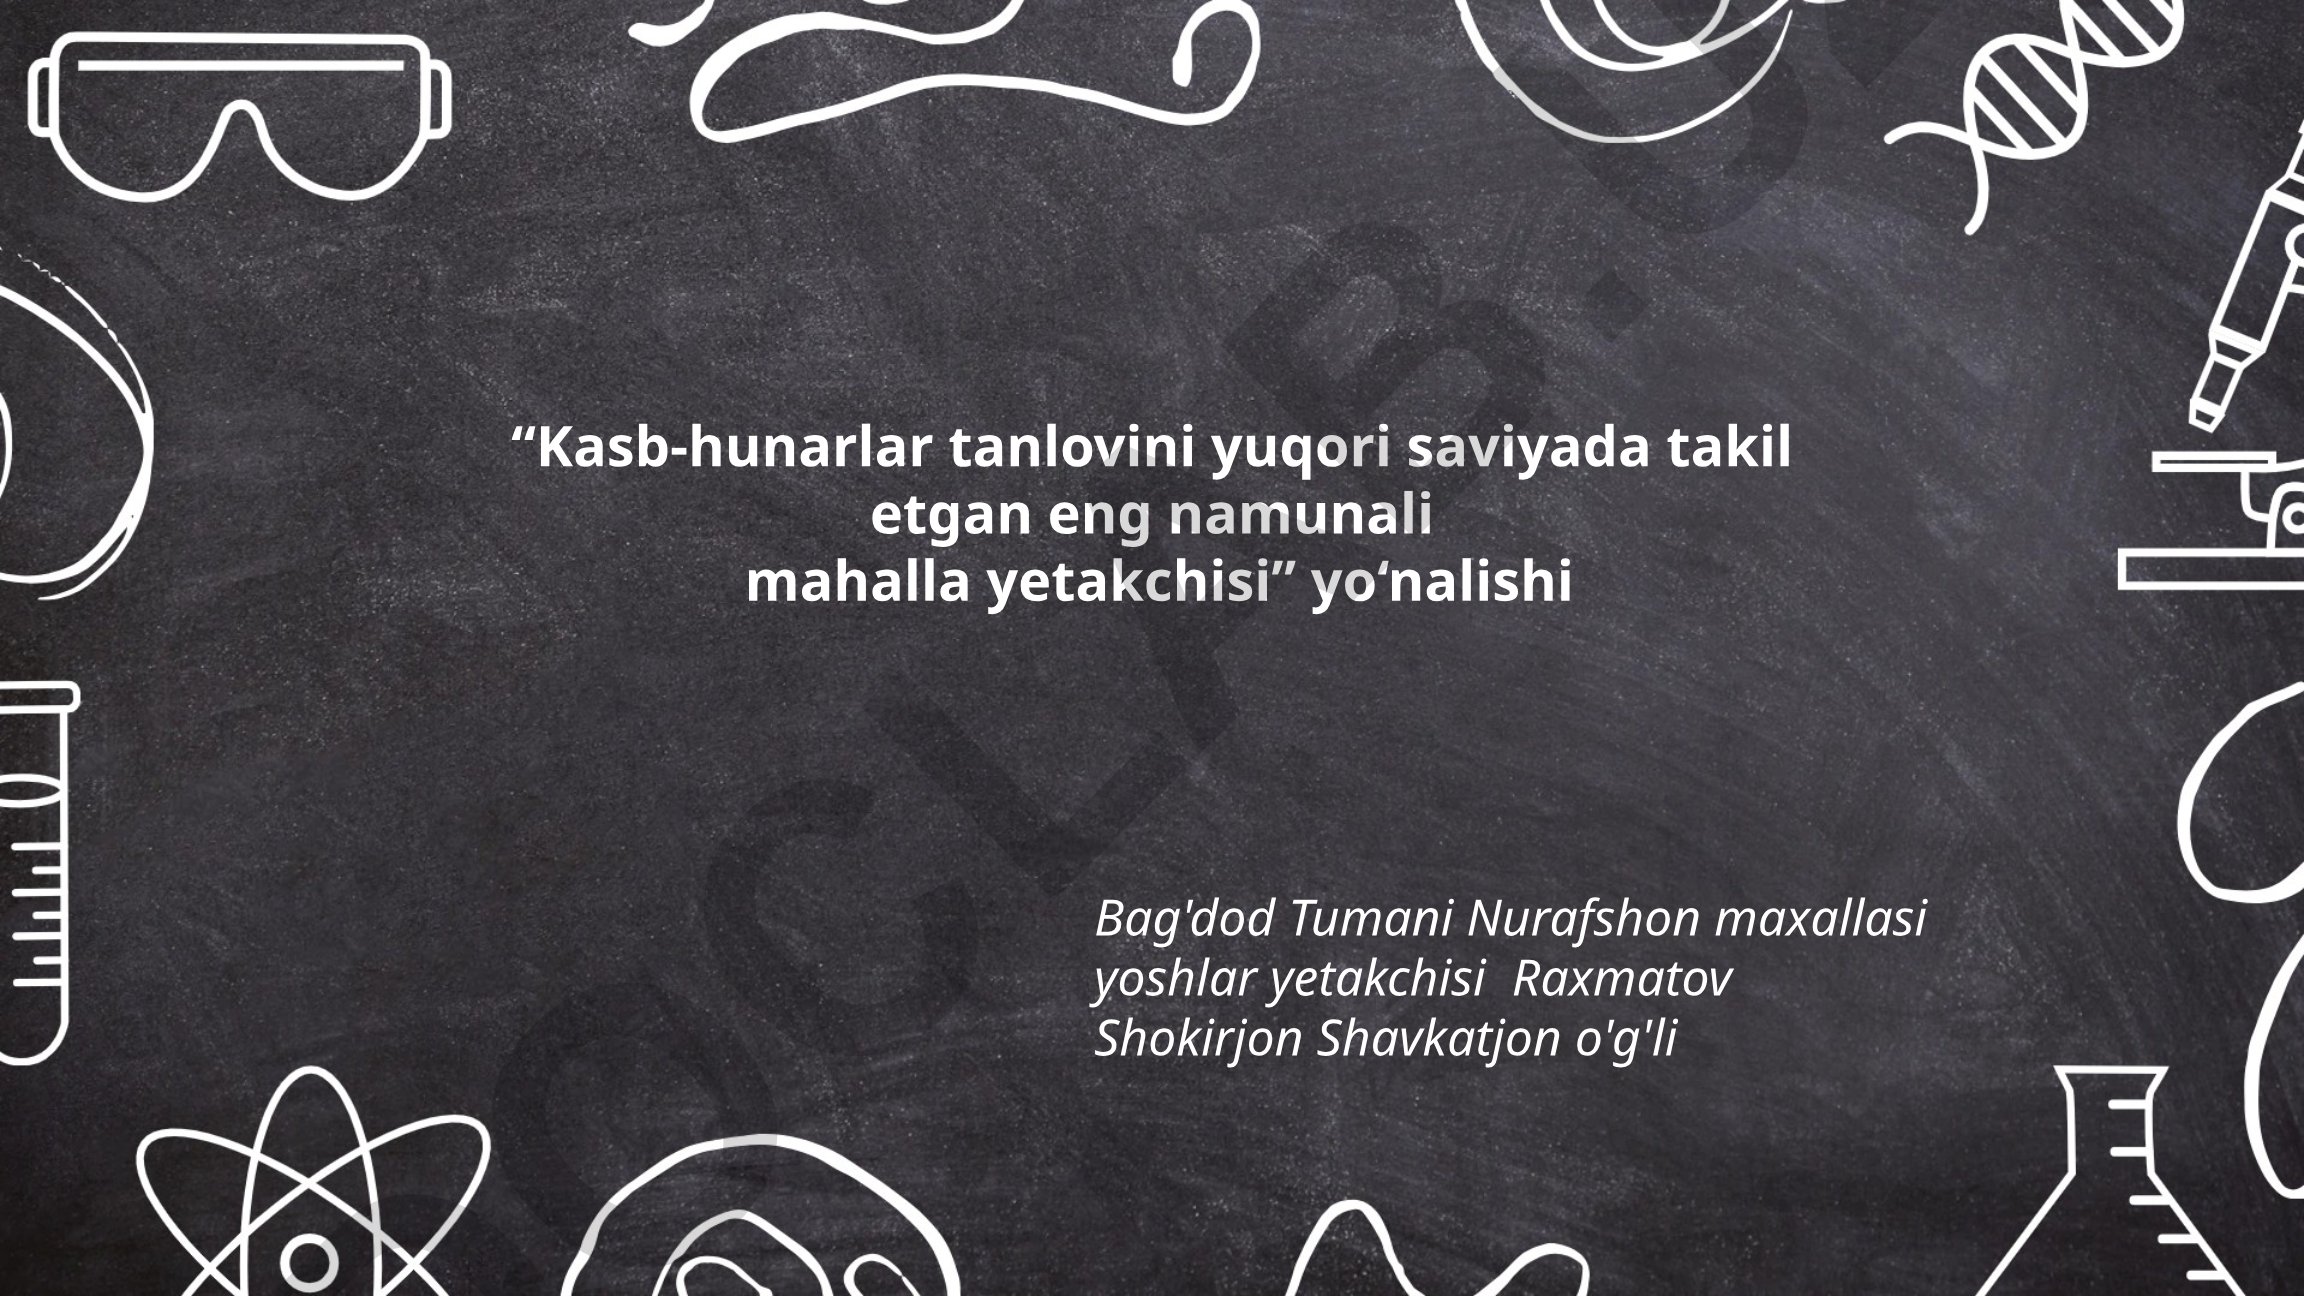 “Kasb-hunarlar tanlovini yuqori saviyada takil
etgan eng namunali
mahalla yetakchisi” yo‘nalishi
Bag'dod Tumani Nurafshon maxallasi
yoshlar yetakchisi Raxmatov
Shokirjon Shavkatjon o'g'li